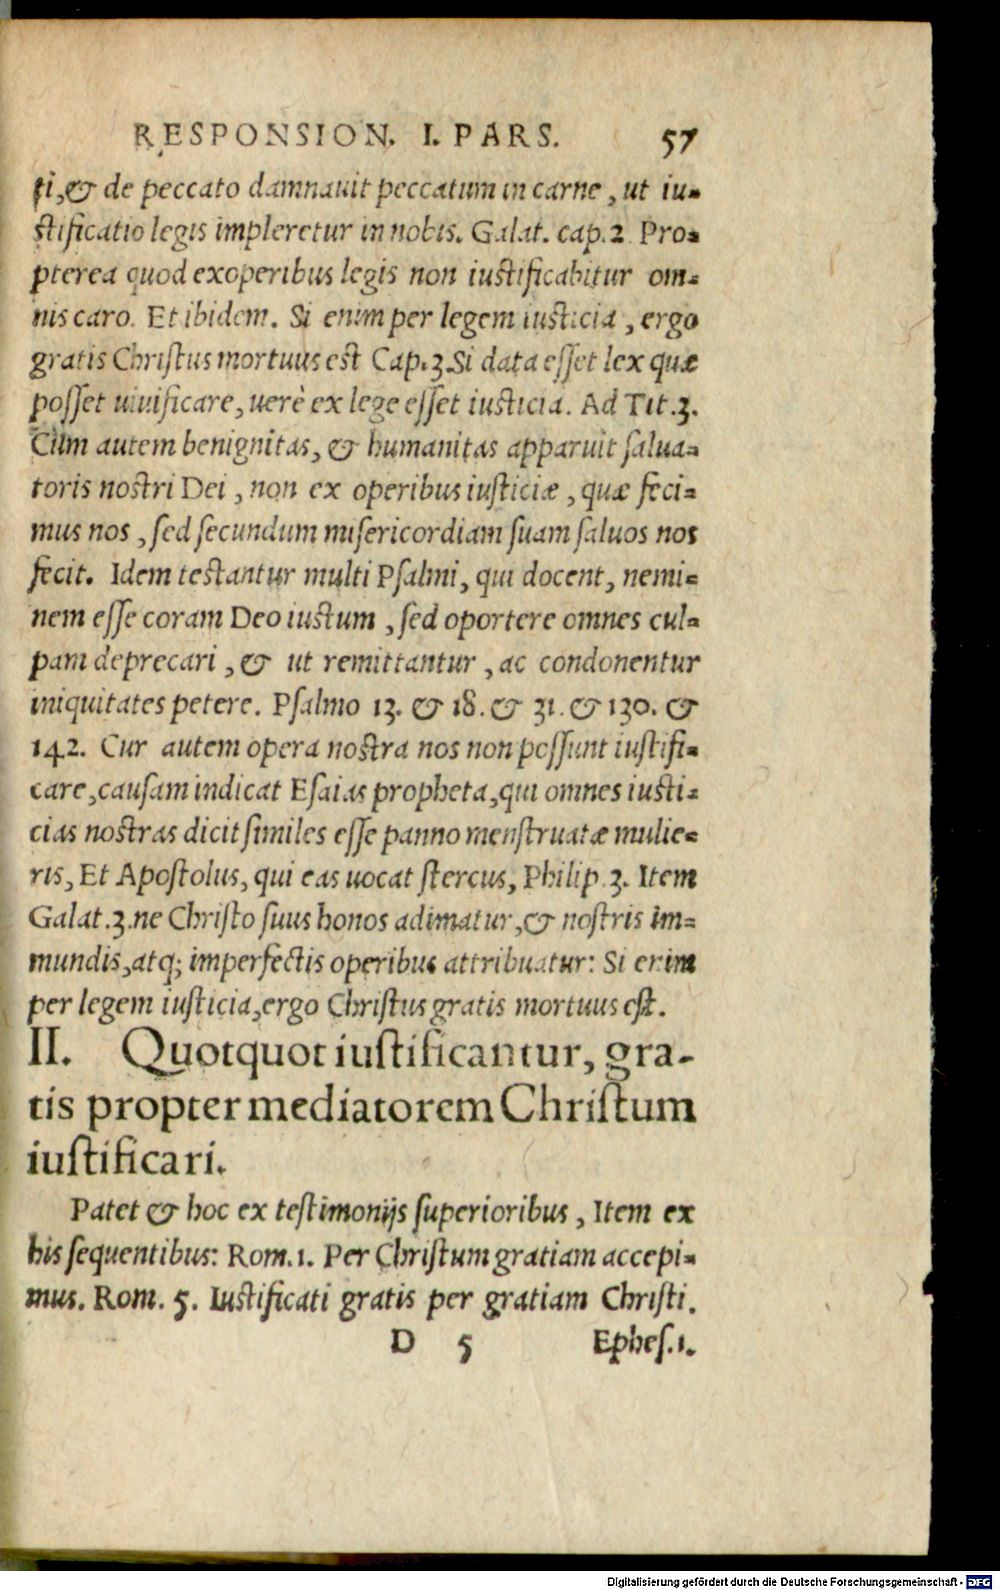 RESPONSION. I. PARS. 57
ti, & de peccato damnauit peccatum in carne, ut iu-
stificatio legis impleretur in nobis. Galat. cap. 2. Pro-
pterea quod ex operibus legis non iustificabitur om-
nis caro. Et ibidem. Si enim per legem iusticia, ergo
gratis Christus mortuus est Cap. 3. Si data esset lex quæ
posset uiuificare, uerè ex lege esset iusticia. Ad Tit. 3.
Cùm autem benignitas, & humanitas apparuit salua-
toris nostri Dei, non ex operibus iusticiæ, quæ feci-
mus nos, sed secundum misericordiam suam saluos nos
fecit. Idem testantur multi Psalmi, qui docent, nemi-
nem esse coram Deo iustum, sed oportere omnes cul-
pam deprecari, & ut remittantur, ac condonentur
iniquitates petere. Psalmo 13. & 18. & 31. & 130. &
142. Cur autem opera nostra nos non possunt iustifi-
care, causam indicat Esaias propheta, qui omnes iusti-
cias nostras dicit similes esse panno menstruatæ mulie-
ris, Et Apostolus, qui eas uocat stercus, Philip. 3. Item
Galat. 3. ne Christo suus honos adimatur, & nostris im-
mundis, atq; imperfectis operibus attribuatur: Si enim
per legem iusticia, ergo Christus gratis mortuus est.
II. Quotquot iustificantur, gra-
tis propter mediatorem Christum
iustificari.
Patet & hoc ex testimonijs superioribus, Item ex
his sequentibus: Rom. 1. Per Christum gratiam accepi-
mus. Rom. 5. Iustificati gratis per gratiam Christi.
D 5 Ephes. 1.
Digitalisierung gefördert durch die Deutsche Forschungsgemeinschaft - DFG